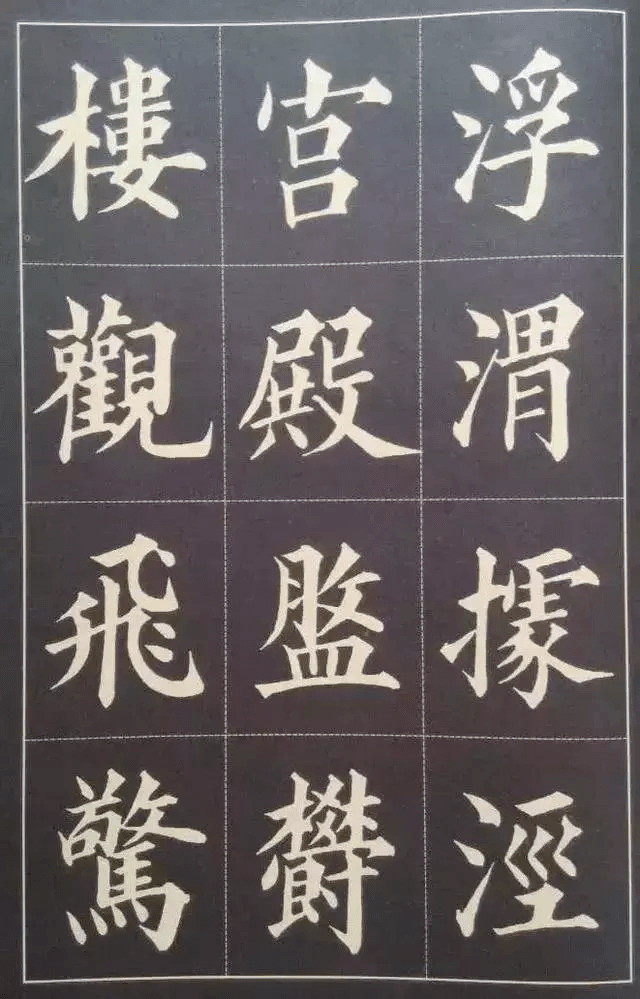 浮渭據涇
宮殿盤欝
樓觀飛驚